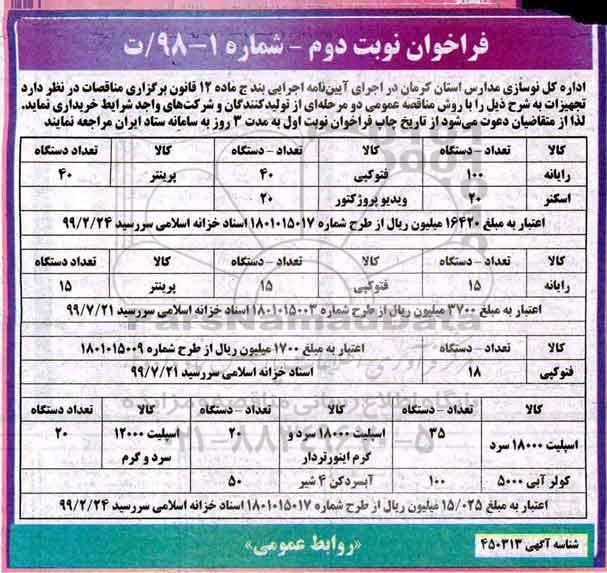 فراخوان نوبت دوم - شماره ۱-۹۸/ت
اداره کل نوسازی مدارس استان کرمان در اجرای آیین‌نامه اجرایی بند ج ماده ۱۲ قانون برگزاری مناقصات در نظر دارد
تجهیزات به شرح ذیل را با روش مناقصه عمومی دو مرحله‌ای از تولیدکنندگان و شرکت‌های واجد شرایط خریداری نماید.
لذا از متقاضیان دعوت می‌شود از تاریخ چاپ فراخوان نوبت اول به مدت ۳ روز به سامانه ستاد ایران مراجعه نمایند
کالا تعداد - دستگاه کالا تعداد - دستگاه کالا تعداد دستگاه
رایانه ۱۰۰ فتوکپی ۴۰ پرینتر ۴۰
اسکنر ۲۰ ویدیو پروژکتور ۲۰
اعتبار به مبلغ ۱۶۴۲۰ میلیون ریال از طرح شماره ۱۸۰۱۰۱۵۰۱۷ اسناد خزانه اسلامی سررسید ۹۹/۲/۲۴
کالا تعداد - دستگاه کالا تعداد - دستگاه کالا تعداد دستگاه
رایانه ۱۵ فتوکپی ۱۵ پرینتر ۱۵
اعتبار به مبلغ ۳۷۰۰ میلیون ریال از طرح شماره ۱۸۰۱۰۱۵۰۰۳ اسناد خزانه اسلامی سررسید ۹۹/۷/۲۱
کالا تعداد - دستگاه اعتبار به مبلغ ۱۷۰۰ میلیون ریال از طرح شماره ۱۸۰۱۰۱۵۰۰۹
فتوکپی ۱۸ اسناد خزانه اسلامی سررسید ۹۹/۷/۲۱
کالا تعداد - دستگاه کالا تعداد - دستگاه کالا تعداد دستگاه
اسپلیت ۱۸۰۰۰ سرد ۳۵ اسپلیت ۱۸۰۰۰ سرد و ۲۰ اسپلیت ۱۲۰۰۰ ۲۰
گرم اینورتردار سرد و گرم
کولر آبی ۵۰۰۰ ۱۰۰ آبسردکن ۴ شیر ۵۰
اعتبار به مبلغ ۱۵/۰۲۵ میلیون ریال از طرح شماره ۱۸۰۱۰۱۵۰۱۷ اسناد خزانه اسلامی سررسید ۹۹/۲/۲۴
شناسه آگهی ۴۵۰۳۱۳ «روابط عمومی»
ParsNamadData
پایگاه اطلاع رسانی مناقصه و مزایده